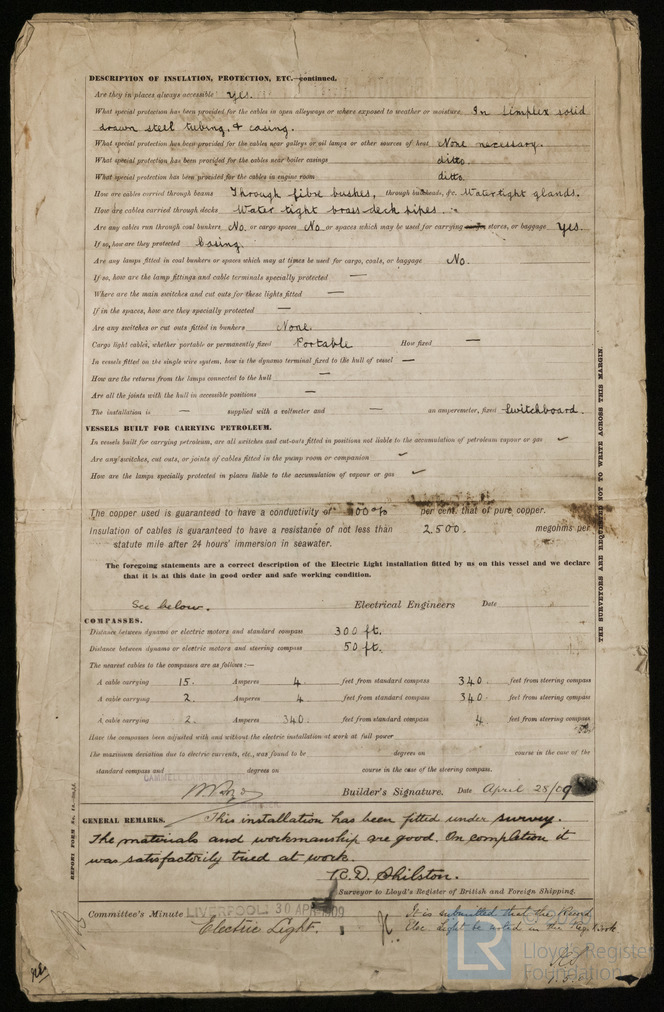 DESCRIPTION OF INSULATION, PROTECTION, ETC.—continued.
Are they in places always accessible Yes.
What special protection has been provided for the cables in open alleyways or where exposed to weather or moisture In Simplex solid
drawn steel tubing, & casing.
What special protection has been provided for the cables near galleys or oil lamps or other sources of heat None necessary.
What special protection has been provided for the cables near boiler casings ditto.
What special protection has been provided for the cables in engine room ditto
How are cables carried through beams Through fibre bushes, through bulkheads, &c. Watertight glands.
How are cables carried through decks Water tight brass deck pipes.
Are any cables run through coal bunkers No. or cargo spaces No. or spaces which may be used for carrying stores, or baggage Yes.
If so, how are they protected Casing.
Are any lamps fitted in coal bunkers or spaces which may at times be used for cargo, coals, or baggage No.
If so, how are the lamp fittings and cable terminals specially protected —
Where are the main switches and cut outs for these lights fitted —
If in the spaces, how are they specially protected —
Are any switches or cut outs fitted in bunkers None.
Cargo light cables, whether portable or permanently fixed Portable How fixed —
In vessels fitted on the single wire system, how is the dynamo terminal fixed to the hull of vessel —
How are the returns from the lamps connected to the hull —
Are all the joints with the hull in accessible positions —
The installation is — supplied with a voltmeter and — an amperemeter, fixed Switchboard.
VESSELS BUILT FOR CARRYING PETROLEUM.
In vessels built for carrying petroleum, are all switches and cut-outs fitted in positions not liable to the accumulation of petroleum vapour or gas ✓
Are any switches, cut outs, or joints of cables fitted in the pump room or companion ✓
How are the lamps specially protected in places liable to the accumulation of vapour or gas ✓
The copper used is guaranteed to have a conductivity of 100% per cent. that of pure copper.
Insulation of cables is guaranteed to have a resistance of not less than 2500. megohms per
statute mile after 24 hours' immersion in seawater.
The foregoing statements are a correct description of the Electric Light installation fitted by us on this vessel and we declare
that it is at this date in good order and safe working condition.
See below. Electrical Engineers Date
COMPASSES.
Distance between dynamo or electric motors and standard compass 300 ft.
Distance between dynamo or electric motors and steering compass 50 ft.
The nearest cables to the compasses are as follows:—
A cable carrying 15. Amperes 4 feet from standard compass 340. feet from steering compass
A cable carrying 2. Amperes 4 feet from standard compass 340. feet from steering compass
A cable carrying 2. Amperes 340. feet from standard compass 4. feet from steering compass
Have the compasses been adjusted with and without the electric installation at work at full power
The maximum deviation due to electric currents, etc., was found to be degrees on course in the case of the
standard compass and degrees on course in the case of the steering compass.
Builder's Signature. Date April 28/09
GENERAL REMARKS. This installation has been fitted under survey.
The materials and workmanship are good. On completion it
was satisfactorily tried at work.
R.D. Shilston.
Surveyor to Lloyd's Register of British and Foreign Shipping.
Committee's Minute LIVERPOOL. 30 APR 1909
Electric Light.
It is submitted that the Record
Elec Light be noted in the Reg. Book
1.5.09
THE SURVEYORS ARE REQUESTED NOT TO WRITE ACROSS THIS MARGIN.
REPORT FORM No.
LR Lloyd's Register
Foundation